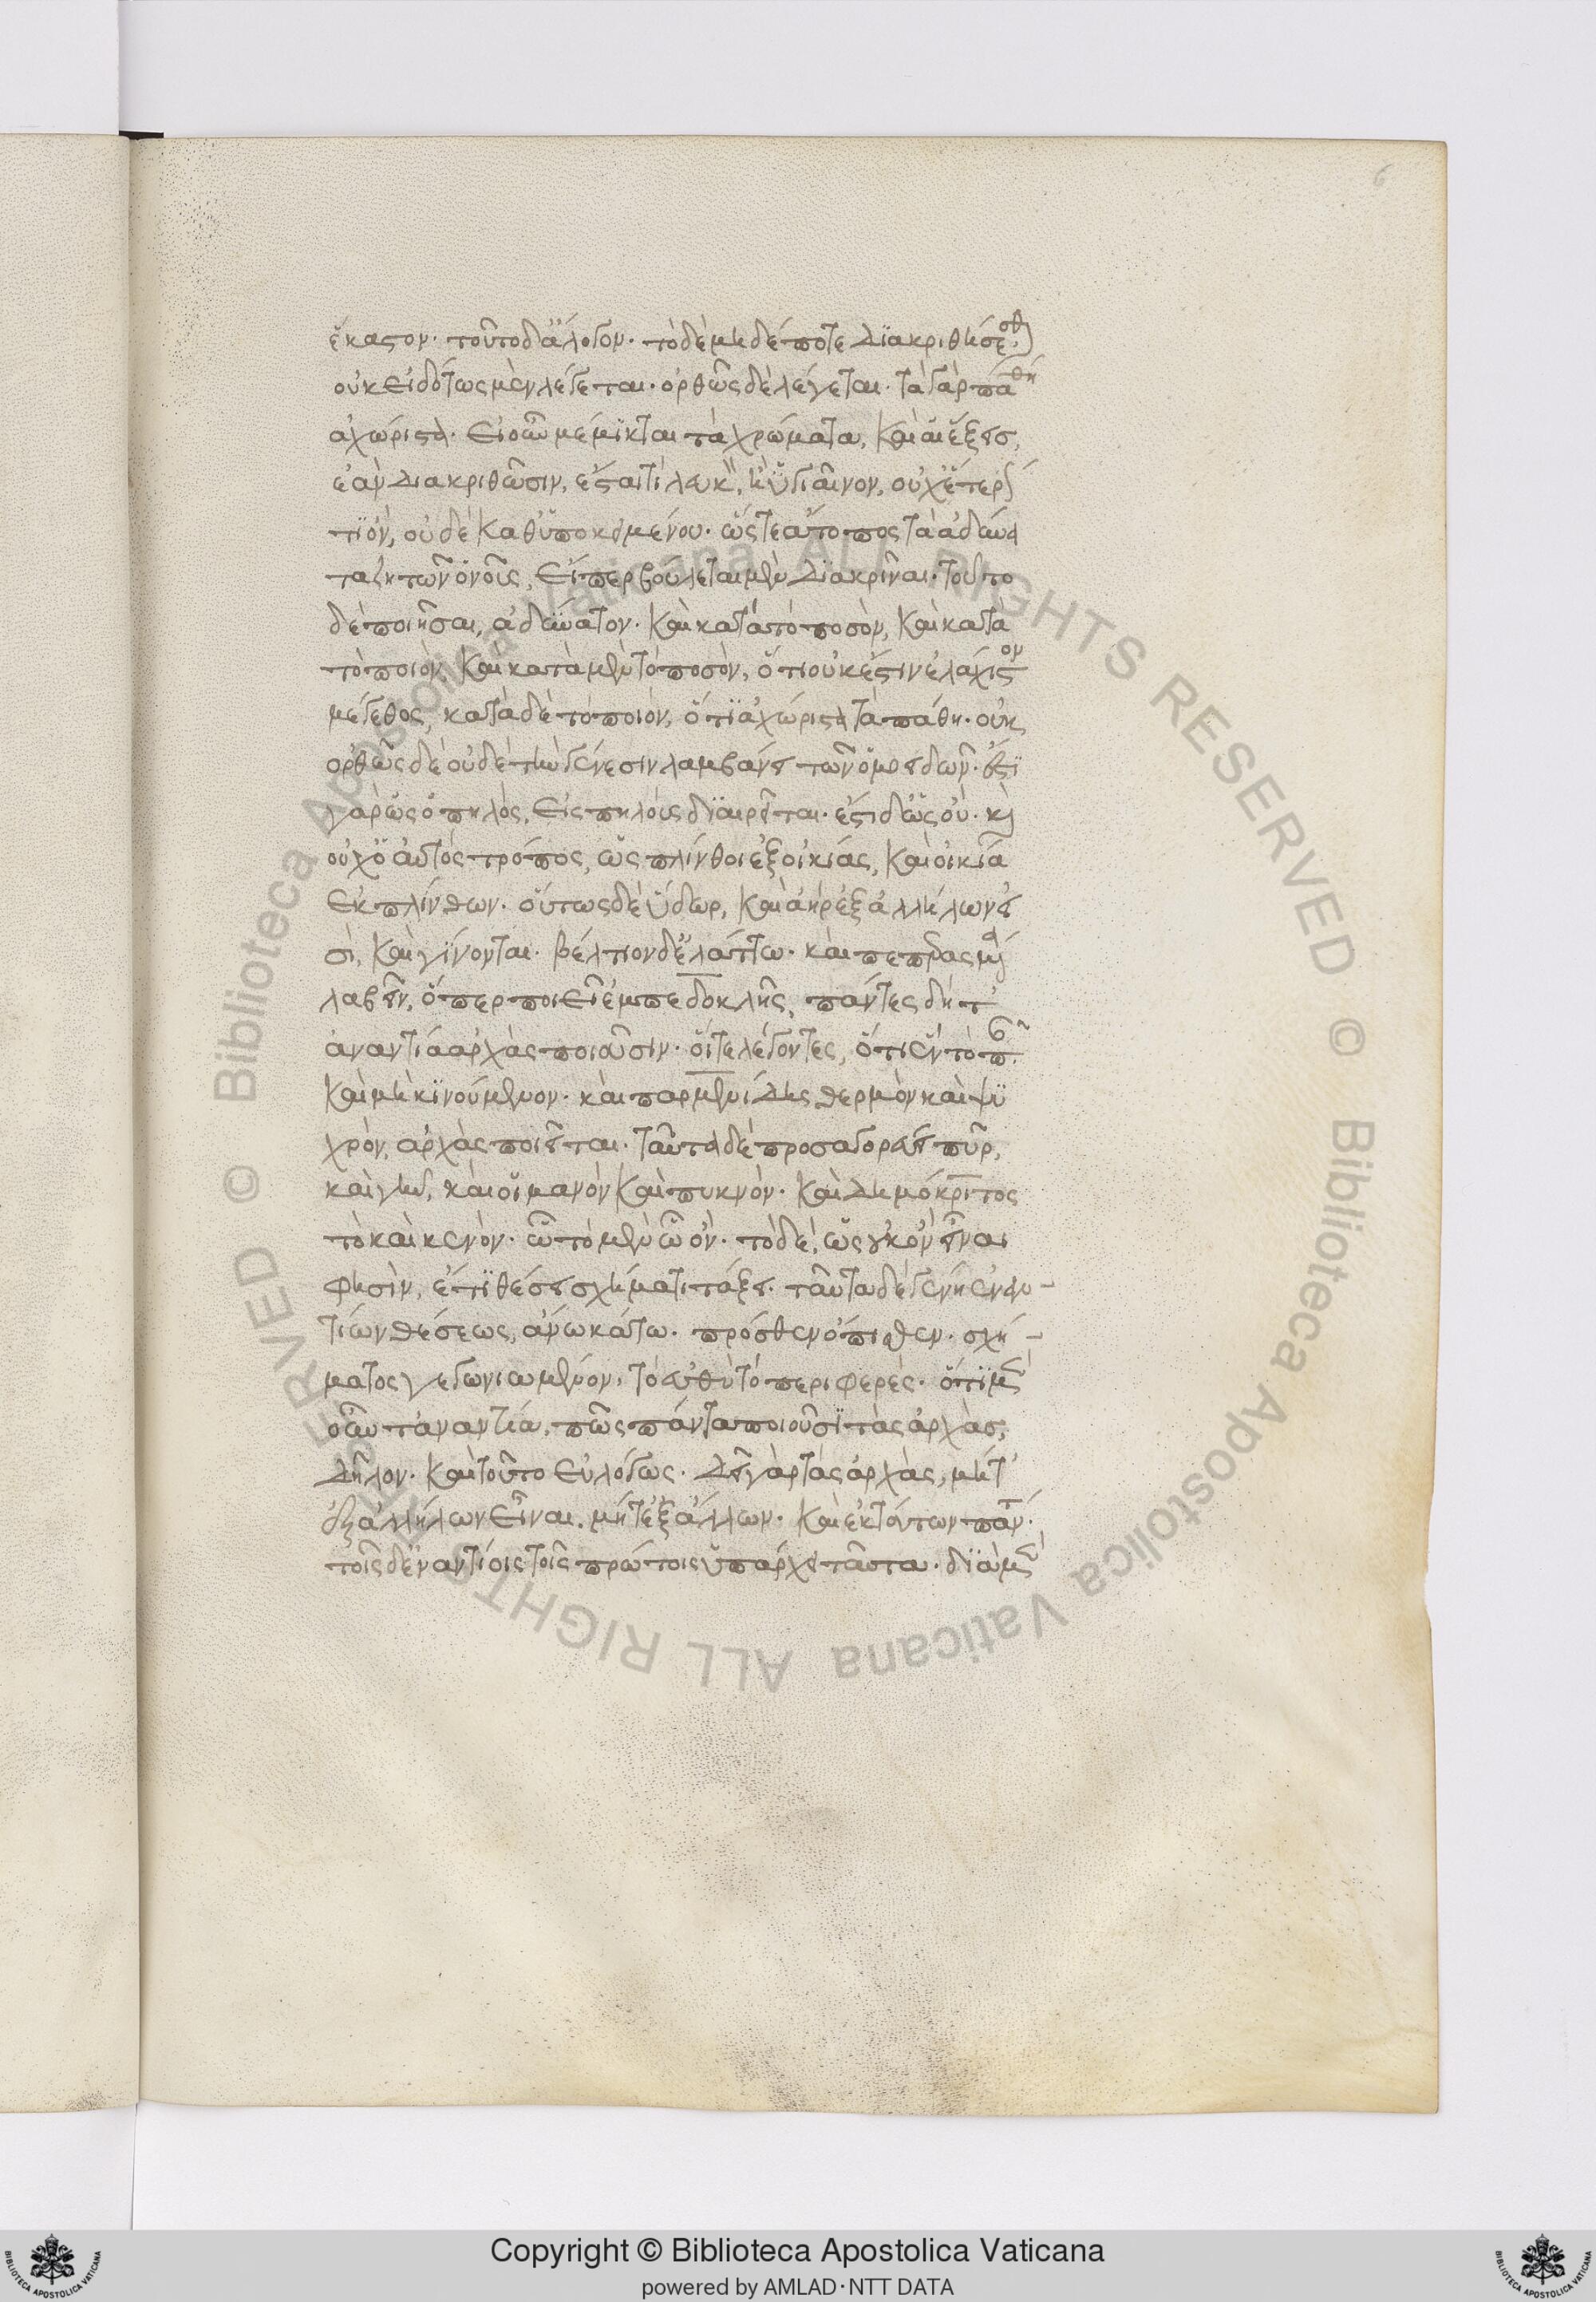 6
ἕκαστον· τοῦτο δ' ἄλογον· τὸ δὲ μηδέποτε διακριθήσεσθαι
οὐκ εἰδότως μὲν λέγεται· ὀρθῶς δὲ λέγεται· τὰ γὰρ πάθη
ἀχώριστα· εἰ οὖν μέμικται τὰ χρώματα, καὶ αἱ ἕξεις,
ἐὰν διακριθῶσιν, ἔσται τι λευκὸν, ἢ ὑγιαῖνον, οὐχ ἕτερόν
τι ὂν, οὐδὲ καθ' ὑποκειμένου· ὥστε ἄτοπος τὰ ἀδύνα
τα ζητῶν ὁ νοῦς, εἴπερ βούλεται μὲν διακρῖναι· τοῦτο
δὲ ποιῆσαι, ἀδύνατον· καὶ κατὰ τὸ ποσὸν, καὶ κατὰ
τὸ ποιὸν, καὶ κατὰ μὲν τὸ ποσὸν, ὅτι οὐκ ἔστιν ἐλάχιστον
μέγεθος, κατὰ δὲ τὸ ποιόν, ὅτι ἀχώριστα τὰ πάθη· οὐκ
ὀρθῶς δὲ οὐδὲ τὴν γένεσιν λαμβάνει τῶν ὁμοειδῶν· ἔστι
γὰρ ὡς ὁ πηλὸς, εἰς πηλοὺς διαιρεῖται· ἔστι δ' ὡς οὔ· καὶ
οὐχ ὁ αὐτὸς τρόπος, ὡς πλίνθοι ἐξ οἰκίας, καὶ οἰκία
ἐκ πλίνθων· οὕτως δὲ ὕδωρ, καὶ ἀὴρ ἐξ ἀλλήλων εἰ
σὶ, καὶ γίνονται· βέλτιον δ' ἐλάττω· καὶ πεπερασμένα
λαβεῖν, ὅπερ ποιεῖ ἐμπεδοκλῆς, πάντες δὴ τ'
ἀναντία ἀρχὰς ποιοῦσιν· οἵ τε λέγοντες, ὅτι ἓν τὸ πᾶν
καὶ μὴ κινούμενον· καὶ παρμενίδης θερμὸν καὶ ψυ
χρὸν, ἀρχὰς ποιεῖται· ταῦτα δὲ προσαγορεύει πῦρ,
καὶ γῆν, καὶ οἱ μανὸν καὶ πυκνόν· καὶ δημόκριτος
τὸ καὶ κενόν· ὧν τὸ μὲν ὡς ὄν· τὸ δὲ, ὡς οὐκ ὂν εἶναι
φησὶν, ἔτι θέσει σχήματι τάξει· ταῦτα δὲ γένη ἐναν-
τίων θέσεως, ἄνω κάτω· πρόσθεν ὄπισθεν· σχή-
ματος γεγωνιωμένον, τὸ εὐθὺ τὸ περιφερές· ὅτι μὲν
οὖν τἀναντία, πῶς πάντα ποιοῦσι τὰς ἀρχὰς,
δῆλον· καὶ τοῦτο εὐλόγως· δεῖ γὰρ τὰς ἀρχὰς, μήτ'
ἐξ ἀλλήλων εἶναι, μήτε ἐξ ἄλλων· καὶ ἐκ τούτων πάντα·
τοῖς δ' ἐναντίοις τοῖς πρώτοις ὑπάρχει ταῦτα· διὰ μὲν
Copyright © Biblioteca Apostolica Vaticana
powered by AMLAD·NTT DATA
© Biblioteca Apostolica Vaticana ALL RIGHTS RESERVED © Biblioteca Apostolica Vaticana ALL RIGHTS RESERVED
BIBLIOTECA APOSTOLICA VATICANA
BIBLIOTECA APOSTOLICA VATICANA